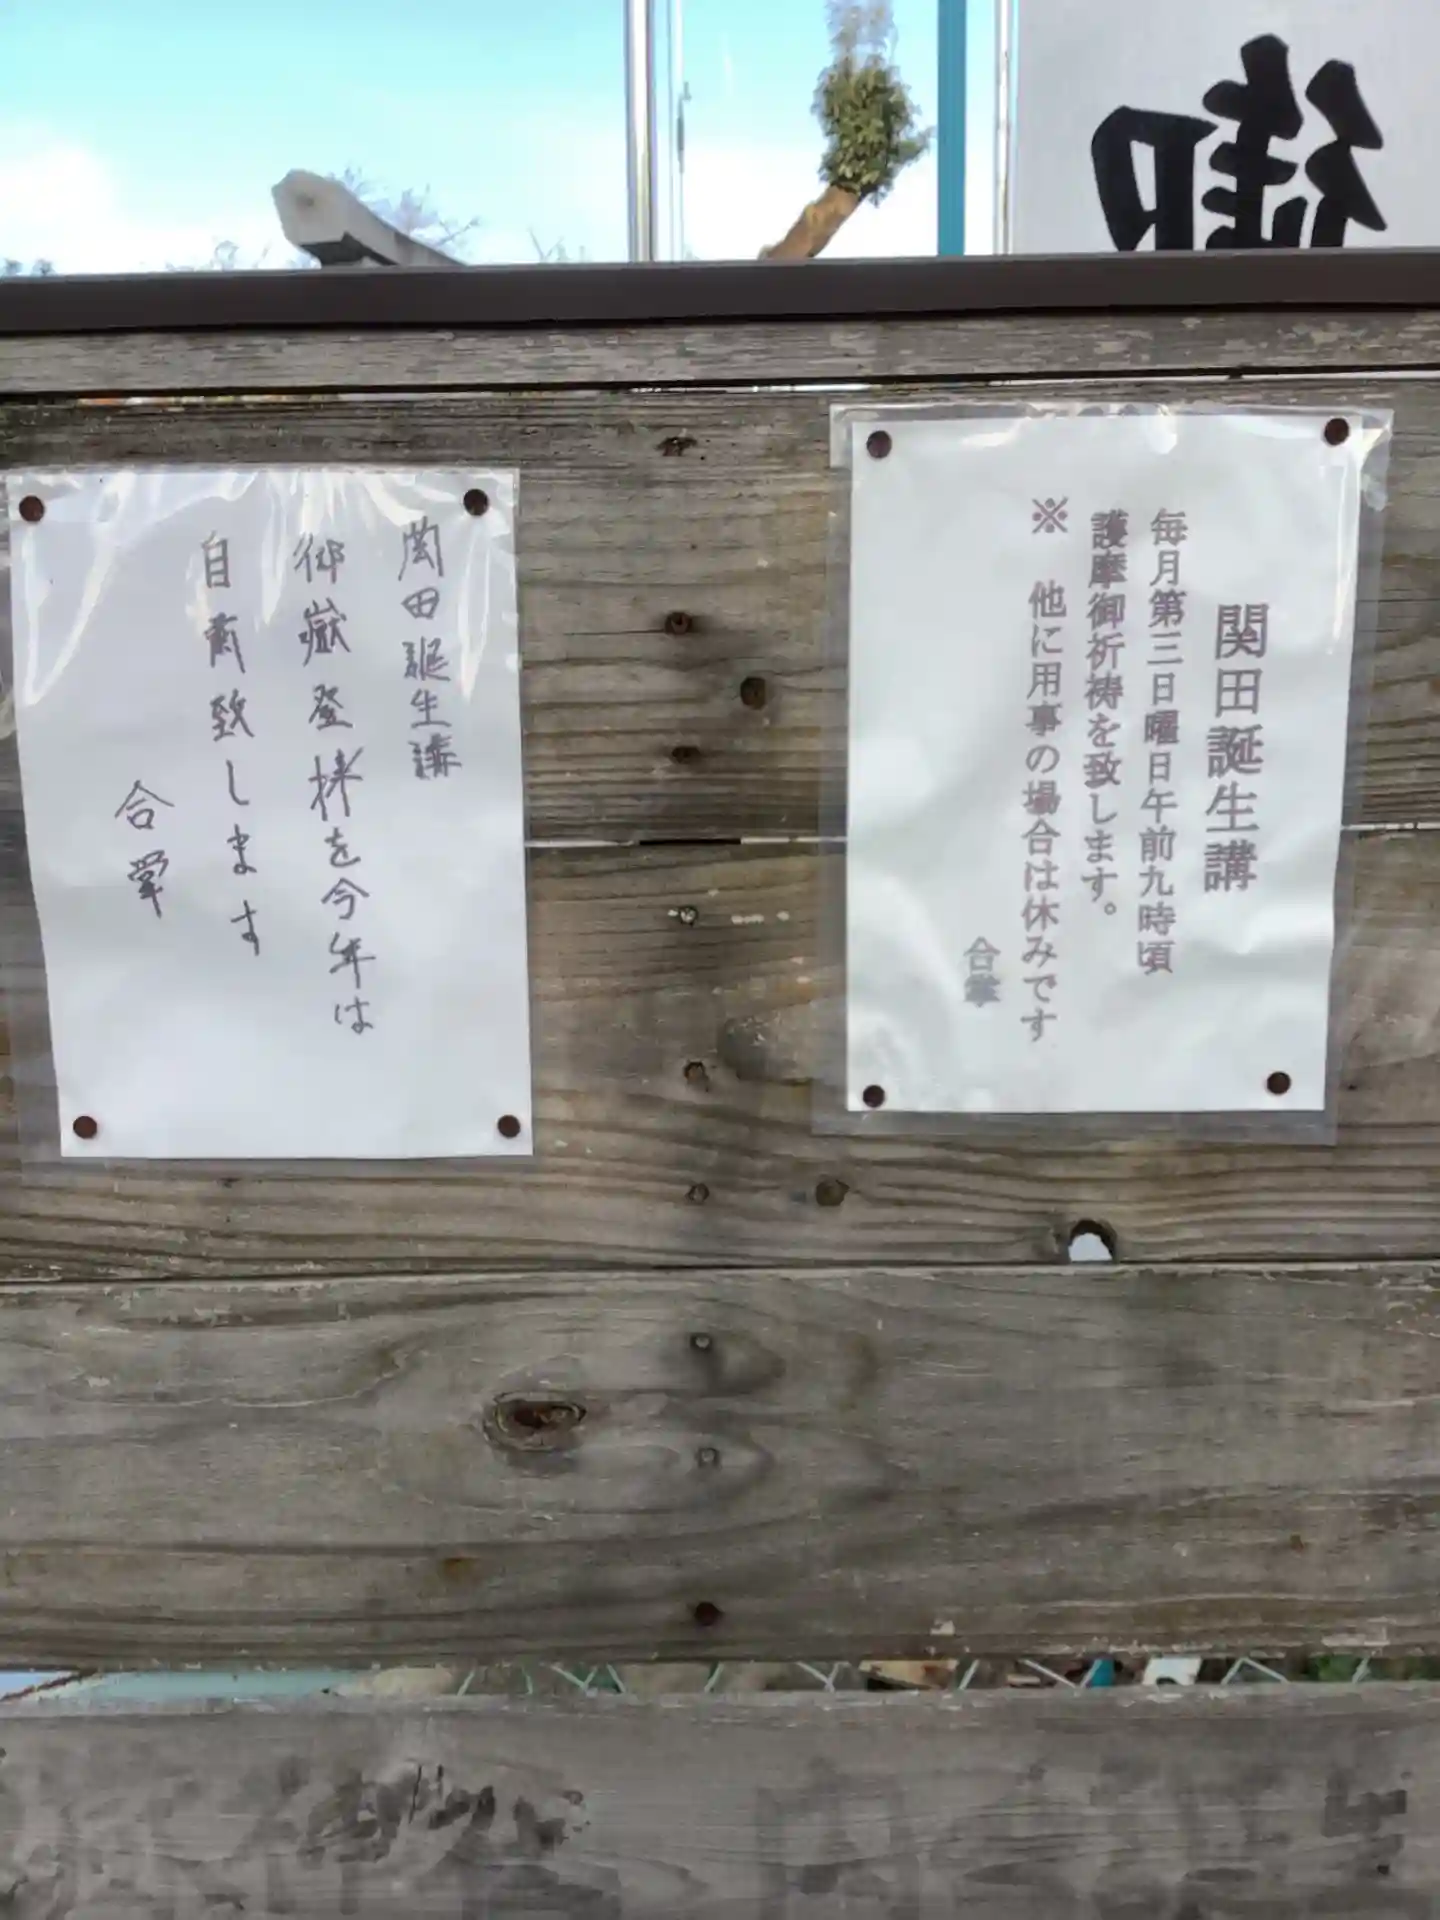 御
関田誕生講
毎月第三日曜日午前九時頃
護摩御祈祷を致します。
※　他に用事の場合は休みです
合掌
関田誕生講
御嶽登拝を今年は
自粛致します
合掌